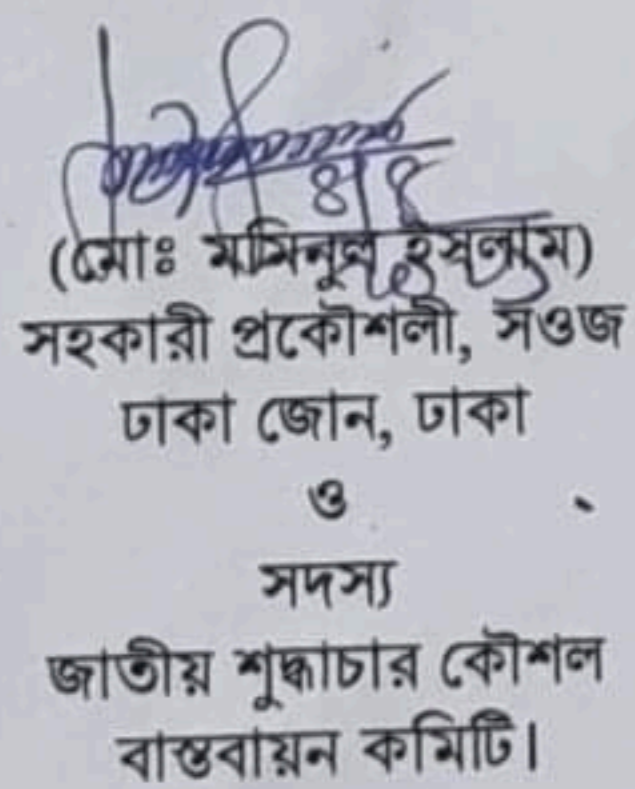 (মোঃ মমিনুল ইসলাম)
সহকারী প্রকৌশলী, সওজ
ঢাকা জোন, ঢাকা
ও
সদস্য
জাতীয় শুদ্ধাচার কৌশল
বাস্তবায়ন কমিটি।